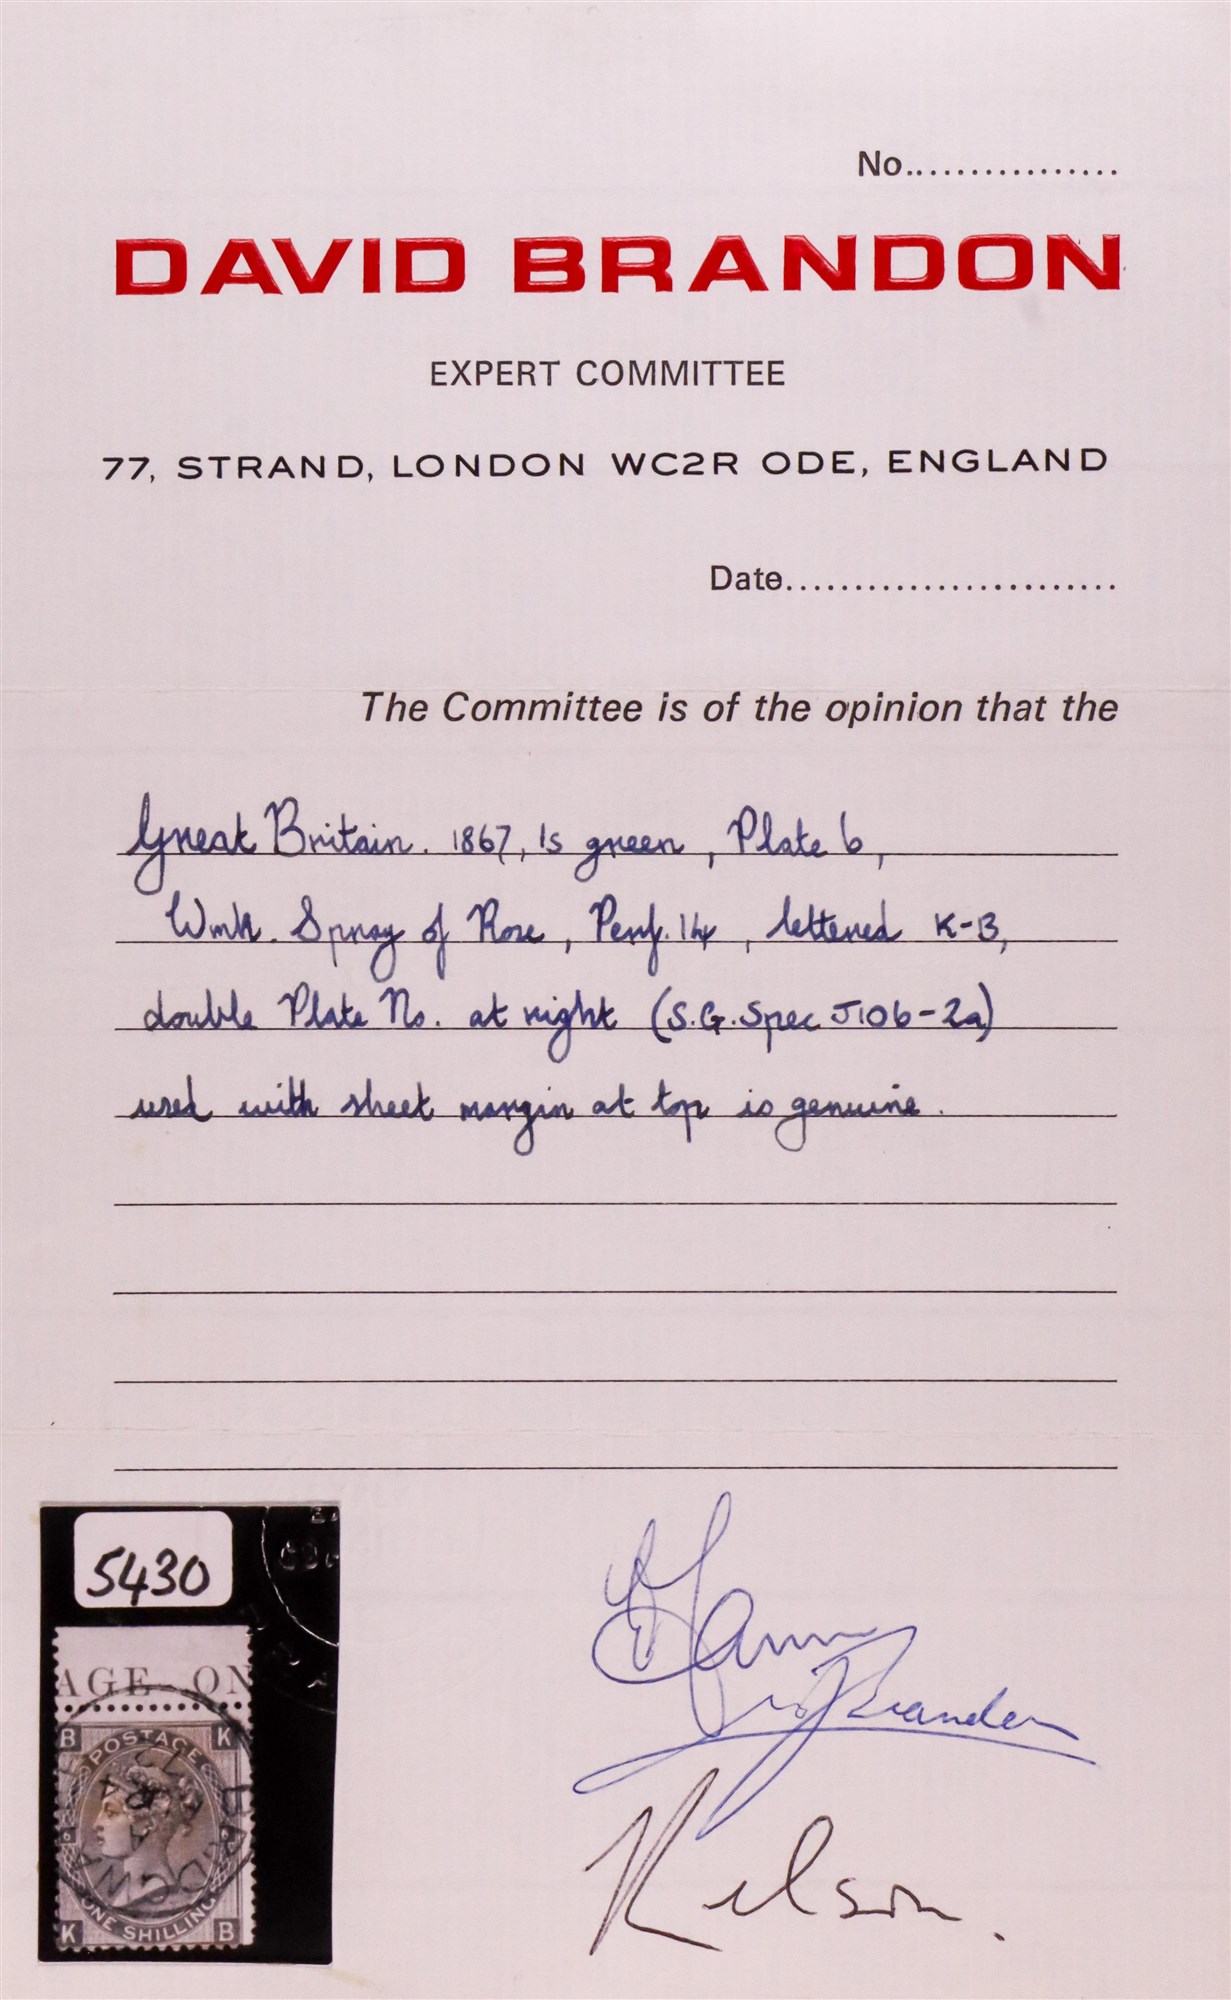 No................
DAVID BRANDON
EXPERT COMMITTEE
77, STRAND, LONDON WC2R ODE, ENGLAND
Date........................
The Committee is of the opinion that the
Great Britain. 1867, 1s green, Plate 6,
Wmk. Spray of Rose, Perf. 14, lettered K-B,
double Plate No. at right (S.G. Spec J106-2a)
used with sheet margin at top is genuine.
5430
AGE ON
B K
POSTAGE
6 6
ONE SHILLING
K B
Brandon